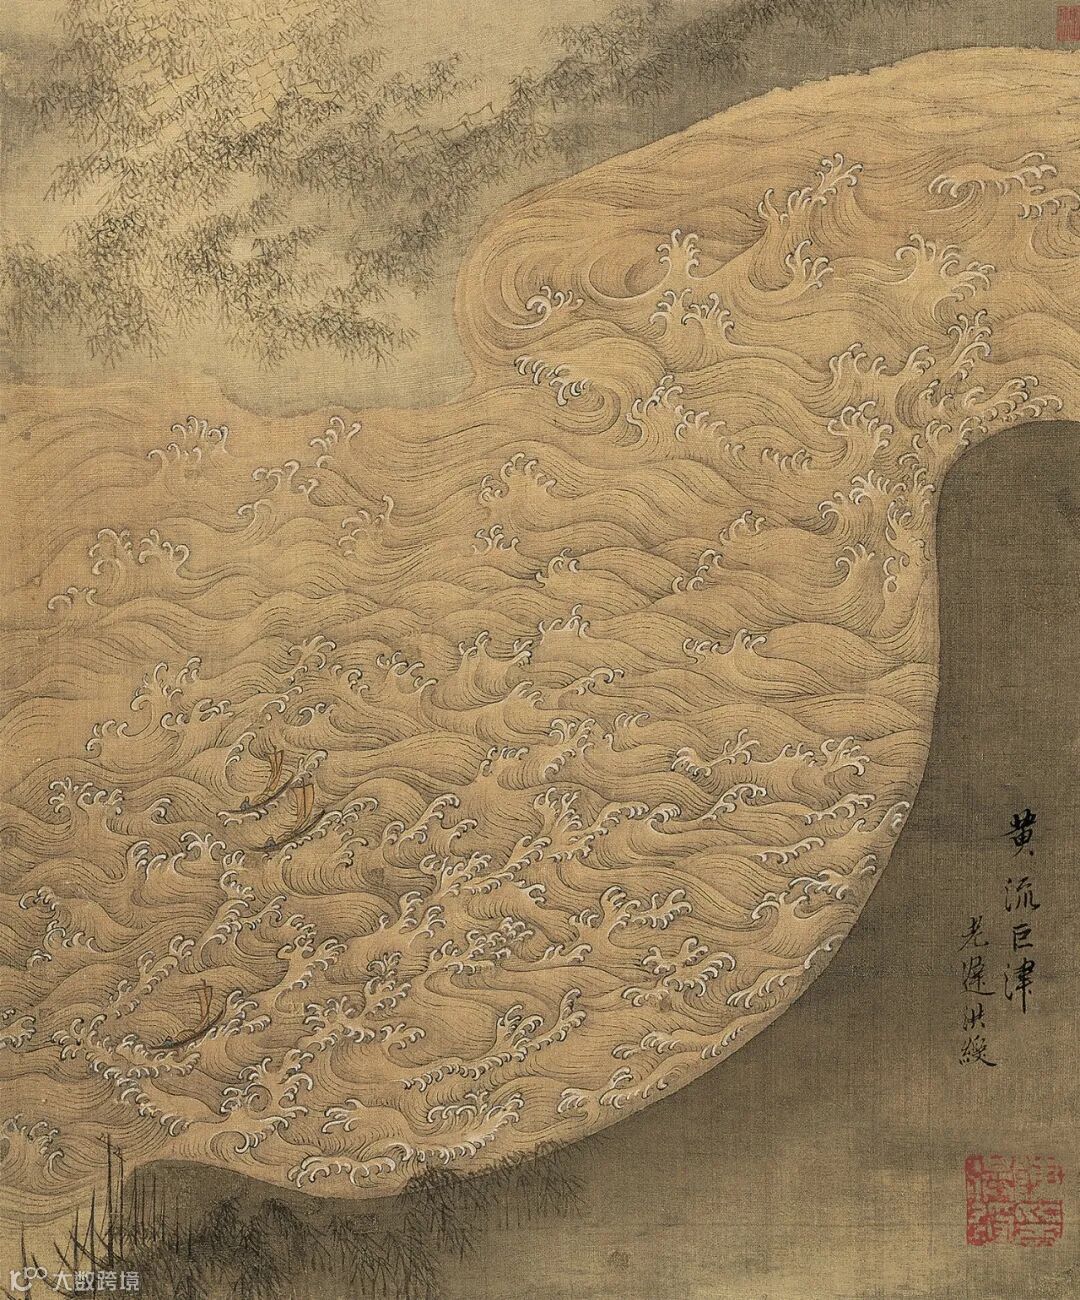 黄流巨津
老遲洪綬
大数跨境